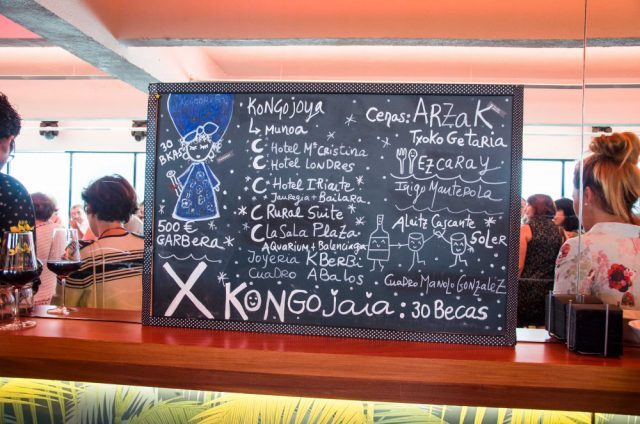 30
BKAS
500 €
GARBERA
KONGOJOYA
↳ MUNOA
HOTEL Mª CRISTINA
HOTEL LONDRES
HOTEL IRIARTE
JAUREGIA + BAILARA
RURAL SUITE
LA SALA PLAZA
AQUARIUM + BALENCIAGA
JOYERIA KBERBI
CUADRO ABALOS
CENAS: ARZAK
TXOKO GETARIA
EZCARAY
IÑIGO MANTEROLA
ALEITZ CASCANTE
SOLER
CUADRO MANOLO GONZALEZ
X KONGOJAIA: 30 BECAS